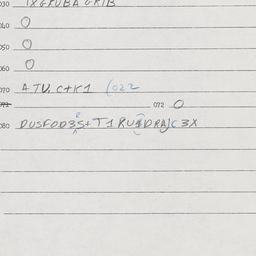 030 1XGRUBA GRIB
040 0
050 0
060 0
070 ATU. C+K1 (022
072 072 0
080 DUSFOD3S+T1RU DRA)C 3X